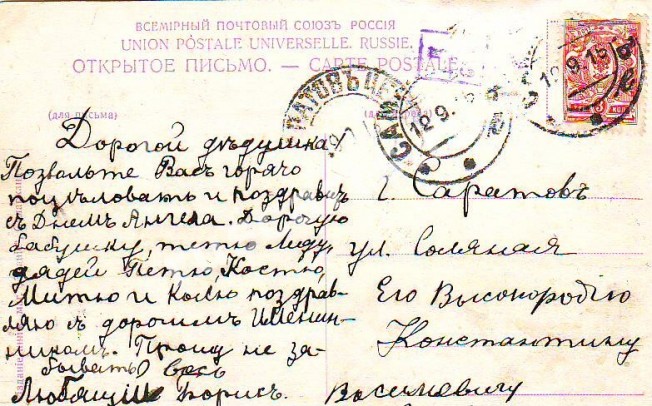 ВСЕМІРНЫЙ ПОЧТОВЫЙ СОЮЗЪ РОССІЯ
UNION POSTALE UNIVERSELLE. RUSSIE.
ОТКРЫТОЕ ПИСЬМО. — CARTE POSTALE.
(для письма)
САМАРА
12 9. 15
Дорогой дѣдушка!
Позвольте Васъ горячо
поцѣловать и поздравить
съ Днемъ Ангела. Дорогую
бабушку, тетю Лиду,
дядей Петю, Костю,
Митю и Колю поздрав-
ляю съ дорогимъ Именин-
никомъ. Прошу не за-
бывать Васъ
Любящій Борисъ.
г. Саратовъ
ул. Соляная
Его Высокородію
Константину
Васильевичу